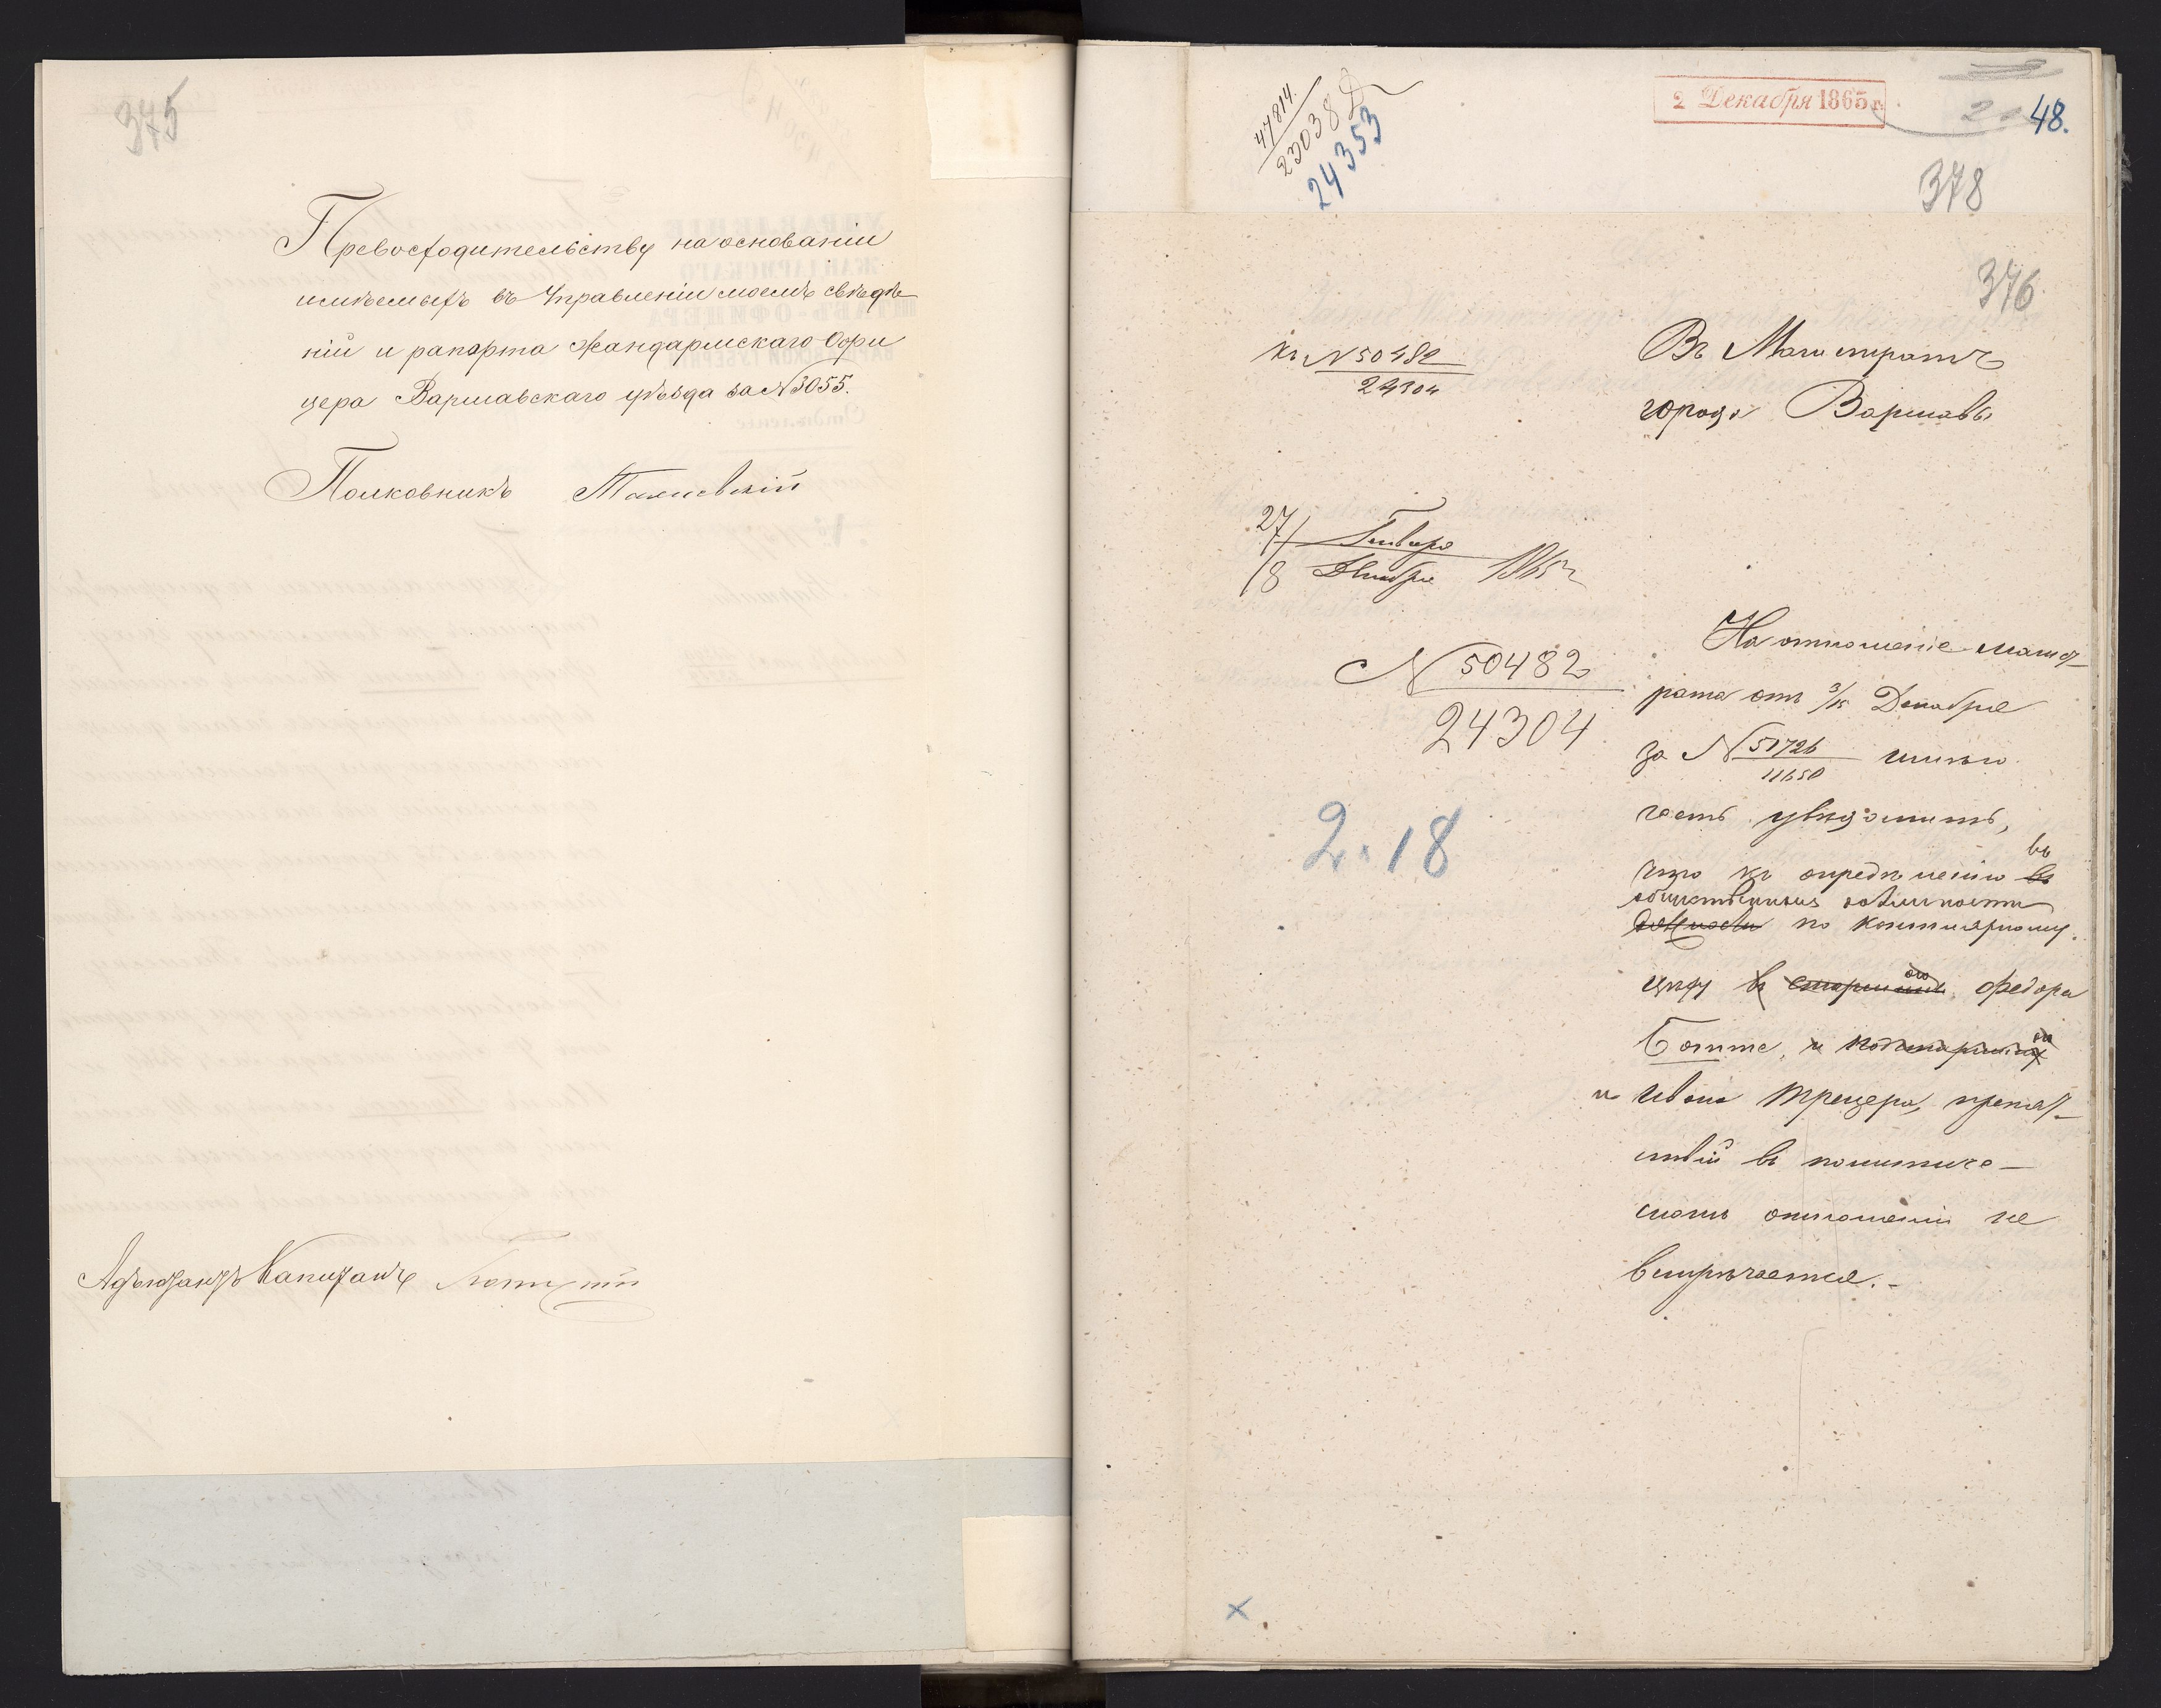 375
Превосходительству на основаніи
имѣемыхъ въ Управленіи моемъ свѣдѣ
ній и рапорта Жандармскаго Офи
цера Варшавскаго уѣзда за № 3055.
Полковникъ
Адъютантъ Капитанъ
47814.
23038
24353
2 Декабря 1865 г.
48.
378
376
къ № 50482
24304
Въ Магистратъ
города Варшавы
27/8 Января 1865
№ 50482
24304
2.18
На отношеніе магист
рата отъ 3/15 Декабря
за № 51726
11650 имѣю
честь увѣдомить,
что къ опредѣленію въ
общественныя должности
по
цеху въ Федора
Ботте, и
и Ивана Трецера, препят
ствій въ политиче
скомъ отношеніи не
встрѣчается.